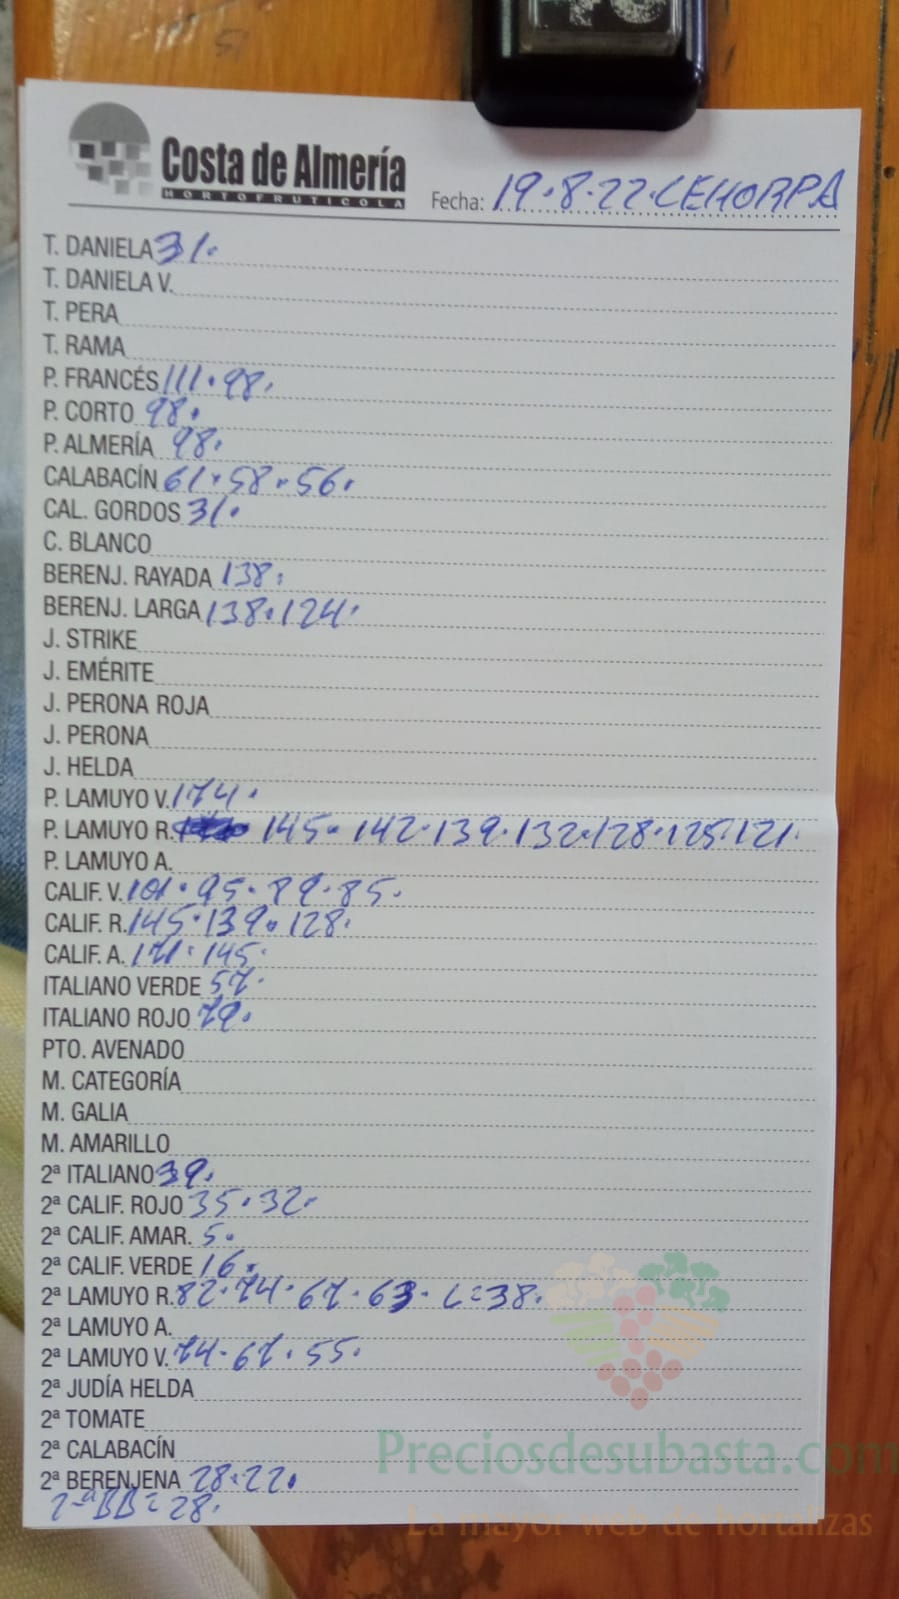 Costa de Almería
HORTOFRUTICOLA
Fecha: 19.8.22.CEHORPA
T. DANIELA 31.
T. DANIELA V.
T. PERA
T. RAMA
P. FRANCÉS 111.98.
P. CORTO 98.
P. ALMERÍA 98.
CALABACÍN 61.58.56.
CAL. GORDOS 31.
C. BLANCO
BERENJ. RAYADA 138.
BERENJ. LARGA 138.124.
J. STRIKE
J. EMÉRITE
J. PERONA ROJA
J. PERONA
J. HELDA
P. LAMUYO V. 174.
P. LAMUYO R. 145.142.139.132.128.125.121.
P. LAMUYO A.
CALIF. V. 101.95.89.85.
CALIF. R. 145.139.128.
CALIF. A. 171.145.
ITALIANO VERDE 57.
ITALIANO ROJO 79.
PTO. AVENADO
M. CATEGORÍA
M. GALIA
M. AMARILLO
2ª ITALIANO 39.
2ª CALIF. ROJO 35.32.
2ª CALIF. AMAR. 5.
2ª CALIF. VERDE 16.
2ª LAMUYO R. 82.74.67.63. L=38.
2ª LAMUYO A.
2ª LAMUYO V. 74.67.55.
2ª JUDÍA HELDA
2ª TOMATE
2ª CALABACÍN
2ª BERENJENA 28.22.
2ªBB=28.
Preciosdesubasta.com
La mayor web de hortalizas